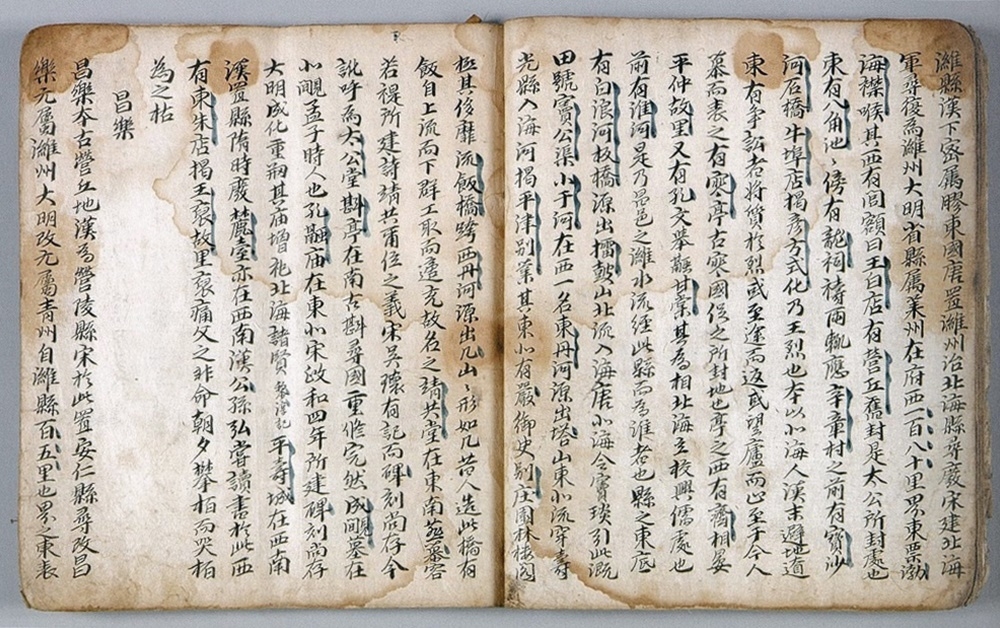 濰縣漢下密屬膠東國唐置濰州治北海縣尋廢宋建北海
軍尋復為濰州大明省縣屬萊州在府西一百八十里界東栗渤
海襟喉其西有閭額曰王白店有營丘舊封是太公所封處也
東有八角池〻傍有龍祠禱雨輒應辛章村之前有寶沙
河石橋牛埠店揭彦方式化乃王烈也本以小海人漢末避地遼
東有爭訟者將質於烈或至途而返或望廬而止至于今人
慕而表之有寒亭古寒國促之所封地也亭之西有齊相晏
平仲故里又有孔文舉融甘棠其為相北海立校興儒處也
前有淮河是乃昌邑之濰水流經此縣而為淮者也縣之東底
有白浪河板橋源出擂鼓山北流入海唐小海令竇琰引此溉
田號竇公渠小于河在西一名東丹河源出塔山東北流穿壽
光縣入海河揭平津別業其東北有嚴御史別庄園林樓閣
極其侈靡流飯橋跨西丹河源出几山〻形如几昔人造此橋有
飯自上流而下群工取而盡克故名之靖共堂在東南燕慕容
若禔所建詩靖共爾位之義宋吳禳有記而碑刻尚存今
訛呼為太公堂斟亭在南古斟尋國重修宛然成覸墓在
小覸孟子時人也孔融庙在東北宋政和四年所建碑刻尚存
大明成化重刱其庙增祀北海諸賢 平壽城在西南
漢置縣隋時廢麓臺亦在西南漢公孫弘嘗讀書於此西
有東朱店揭王裒故里裒痛父之非命朝夕攀柏而哭柏
為之枯
昌樂
昌樂本古營丘地漢為營陵縣宋於此置安仁縣尋改昌
樂元屬濰州大明改尤屬青州自濰縣百五里也界之東表